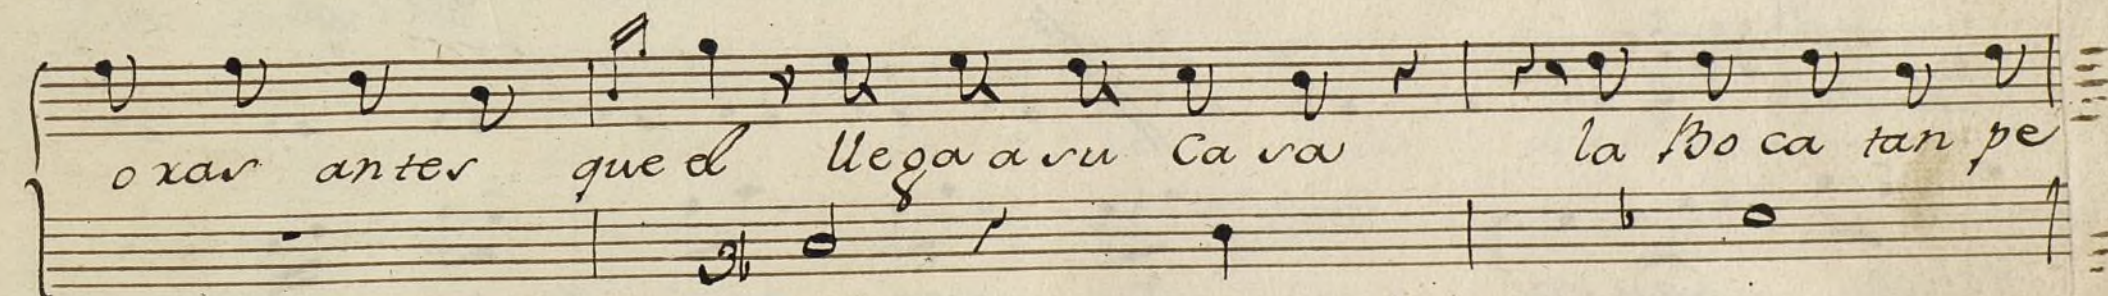 oxas antes que el llega a su Casa la Boca tan pe